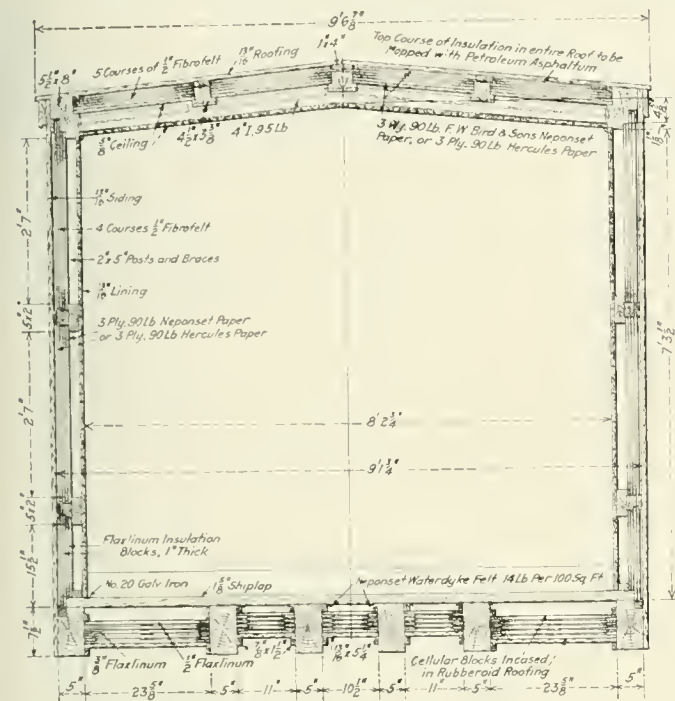 9'6 7/8"
1"x4"
Top Course of Insulation in entire Roof to be
Mopped with Petroleum Asphaltum
5 1/2"x8"
5 Courses of 1/2" Fibrofelt
13/16" Roofing
5/8" Ceiling
4 1/2"x3 3/8"
4" I, 9.5 Lb
3 Ply. 90 Lb. F.W. Bird & Sons Neponset
Paper, or 3 Ply. 90 Lb Hercules Paper
13/16" Siding
4 Courses 1/2" Fibrofelt
2"x5" Posts and Braces
13/16" Lining
3 Ply. 90 Lb Neponset Paper
or 3 Ply. 90 Lb Hercules Paper
2'7"
5"x2"
2'7"
5"x2"
15 1/2"
7 1/8"
7'3 1/2"
8'2 3/4"
9'1 3/4"
Flaxlinum Insulation
Blocks, 1" Thick
No. 20 Galv Iron
1 5/8" Shiplap
Neponset Waterdyke Felt 14 Lb Per 100 Sq Ft
Flaxlinum
1/2" Flaxlinum
13/16"x5 1/4"
Cellular Blocks Incased
in Rubberoid Roofing
5"
23 5/8"
5"
11"
5"
10 1/2"
5"
11"
5"
23 5/8"
5"